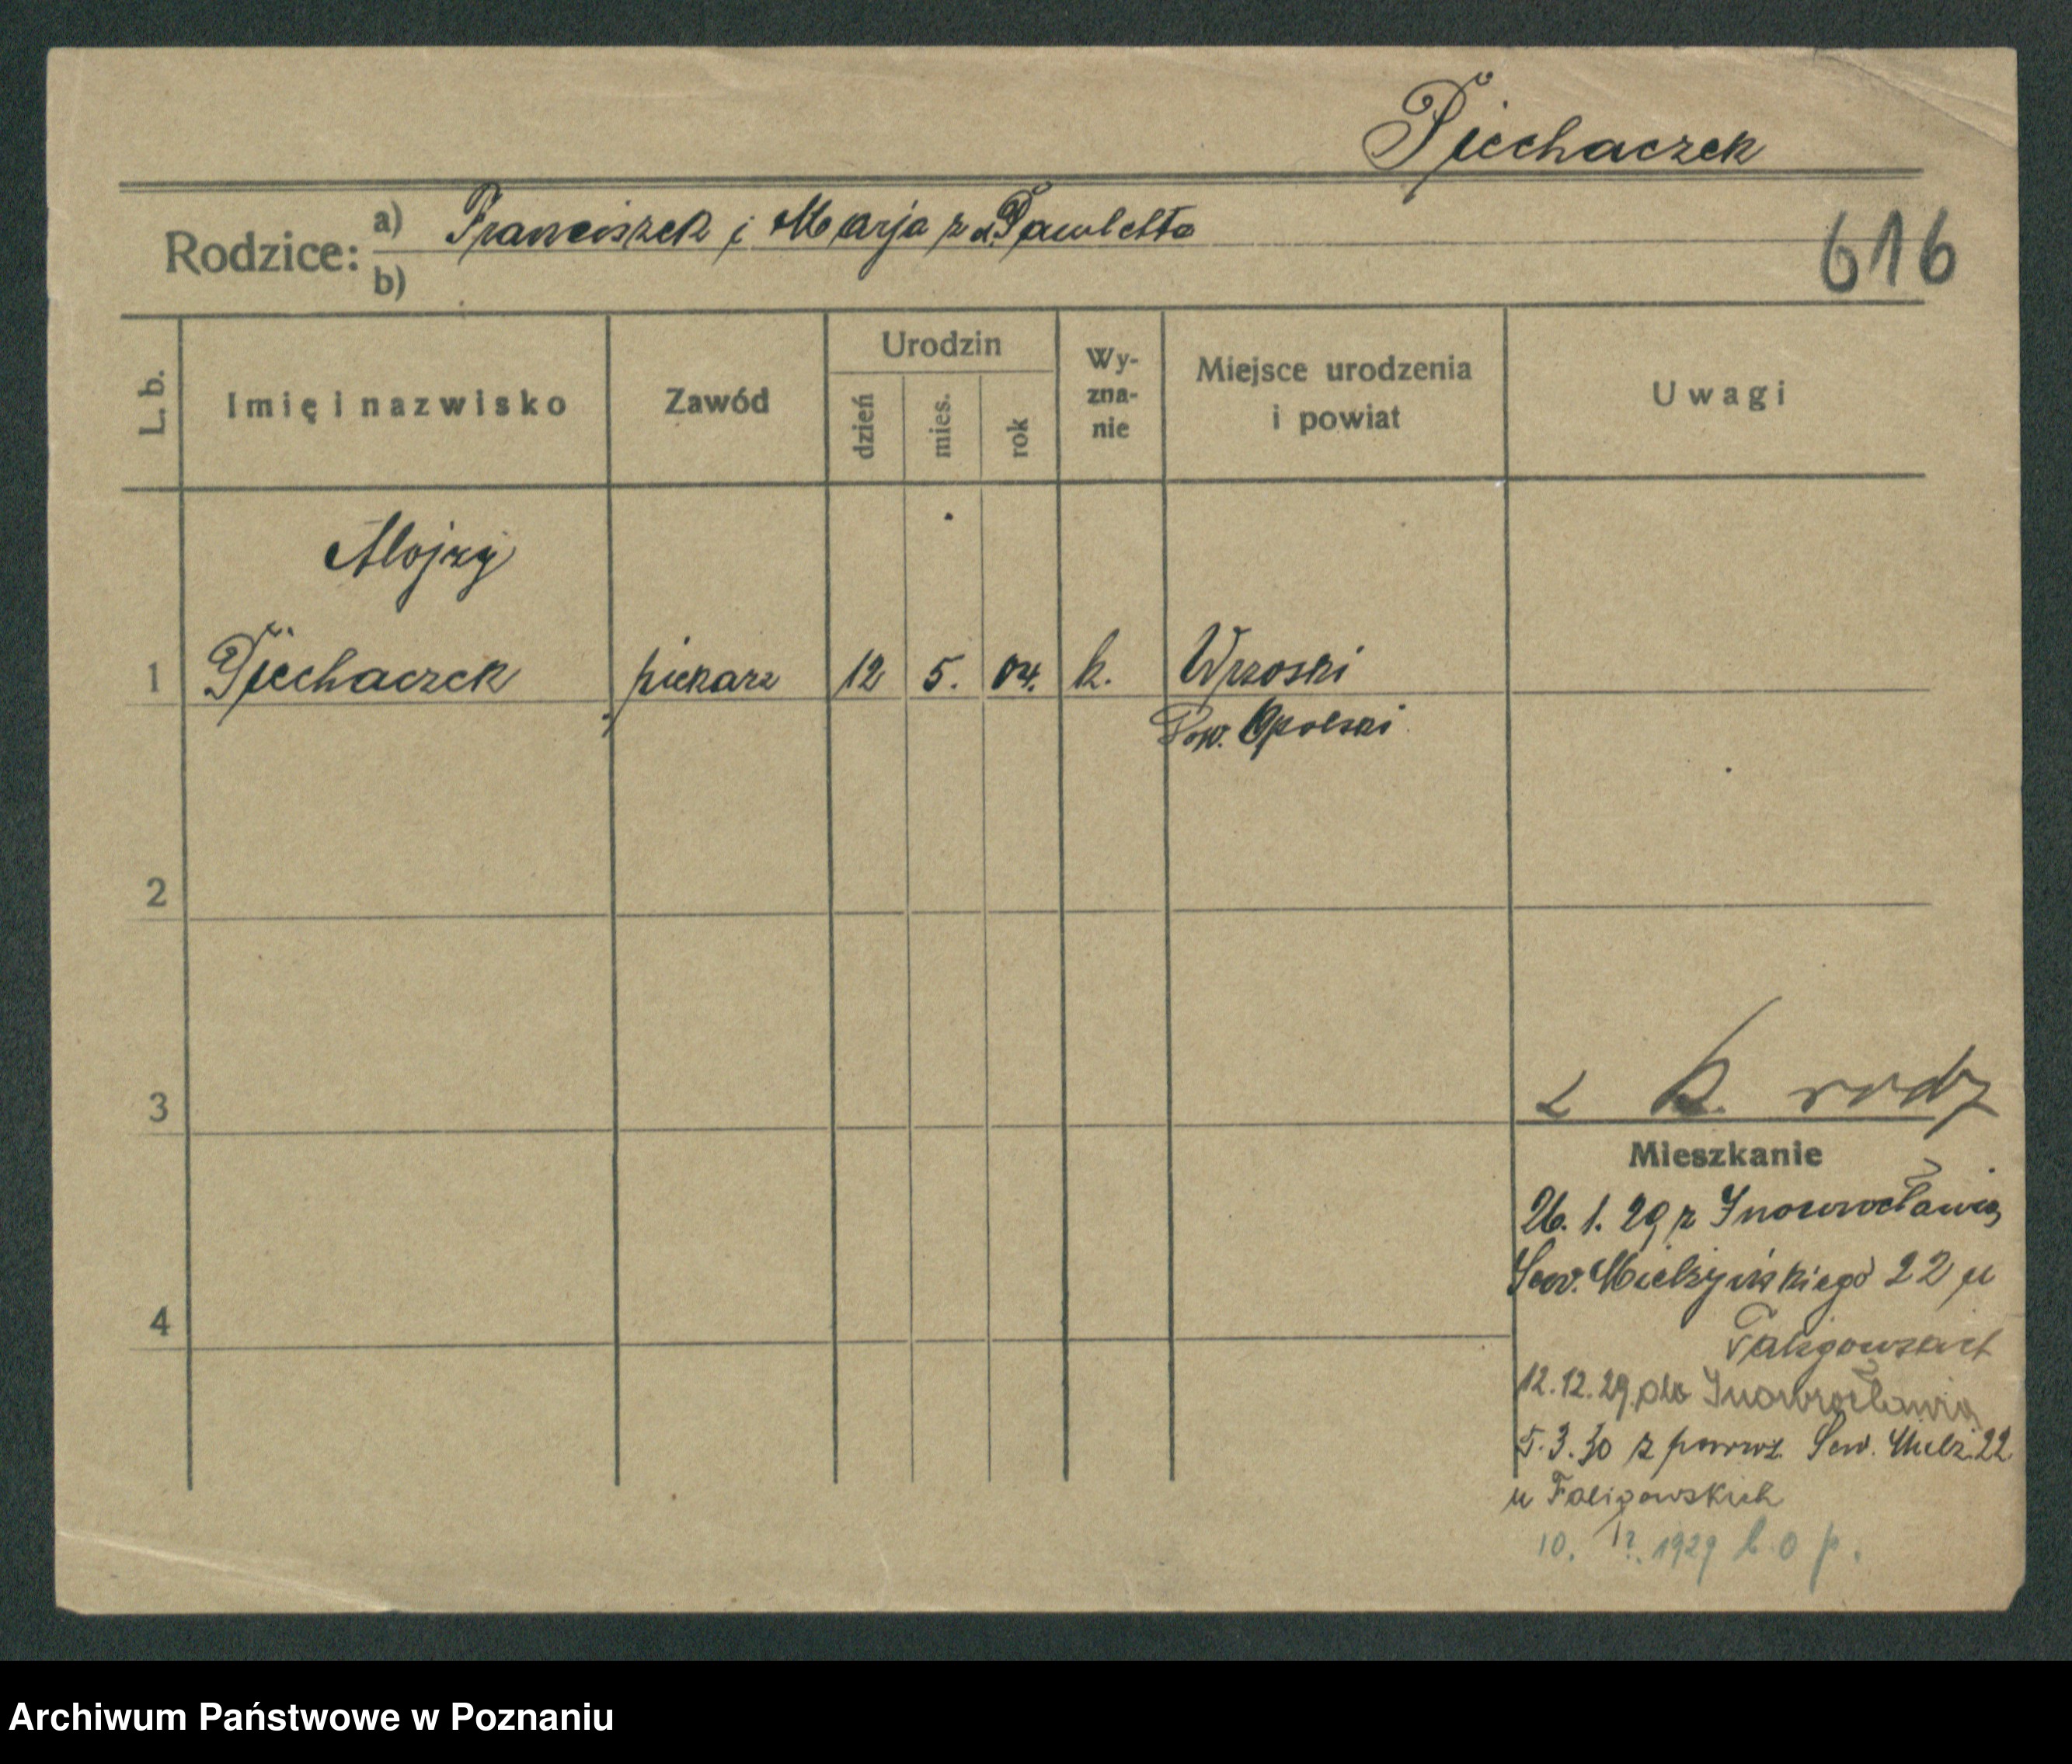 Piechaczek
Rodzice: a) Franciszek i Marja z d. Pawletta
b)
616
L. b.
Imię i nazwisko
Zawód
Urodzin
dzień
mies.
rok
Wy-
zna-
nie
Miejsce urodzenia
i powiat
Uwagi
Alojzy
1 Piechaczek piekarz 12 5. 04. k. Wrzoski
Pow. Opolski
2
3
4
k. rodz
Mieszkanie
26. 1. 29 z Inowrocławia
Sew. Mielżyńskiego 22 u
12.12.29 do Inowrocławia
5.3.30 z powrot. Sew. Mielż. 22
u Faligowskich
10. 1929
Archiwum Państwowe w Poznaniu